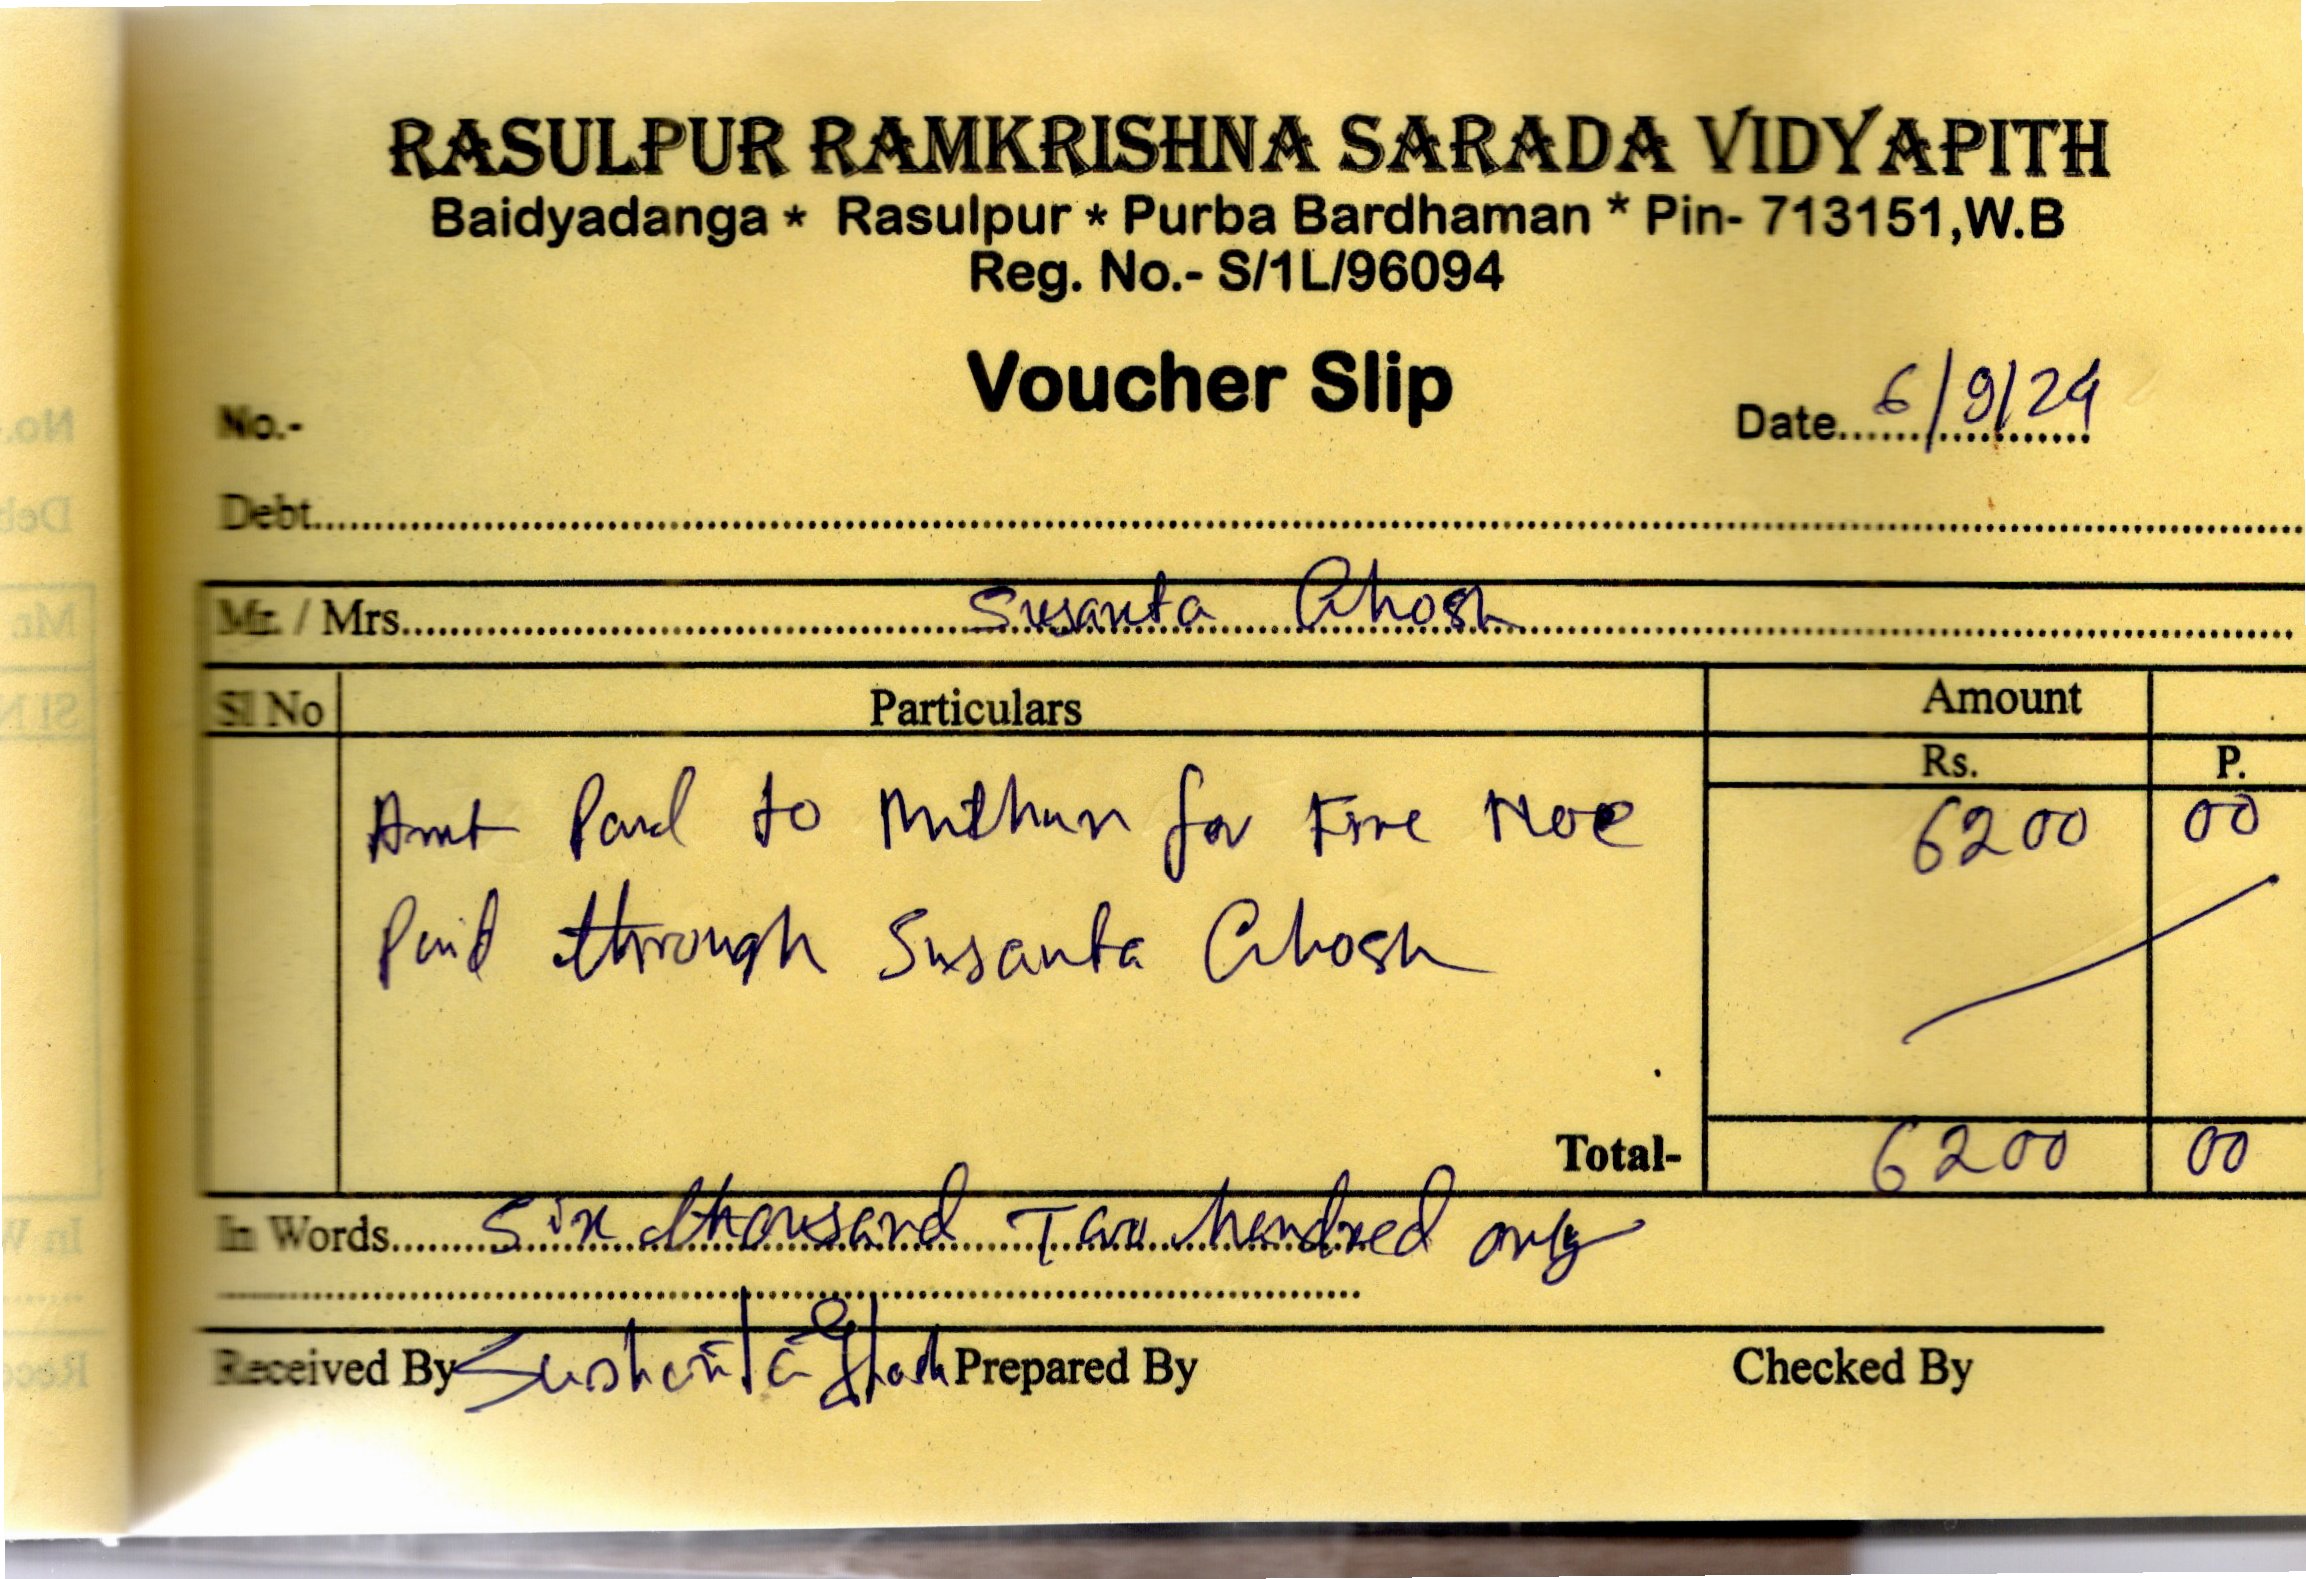 RASULPUR RAMKRISHNA SARADA VIDYAPITH
Baidyadanga * Rasulpur * Purba Bardhaman * Pin- 713151,W.B
Reg. No.- S/1L/96094
Voucher Slip
No.-
Date 6/9/24
Debt
Mr. / Mrs. Susanta Ghosh
Sl No Particulars Amount
Rs. P.
Amt Paid to Mithun for Fire Noc 6200 00
Paid through Susanta Ghosh
Total- 6200 00
In Words Six thousand Two hundred only
Received By Sushanta Ghosh Prepared By Checked By